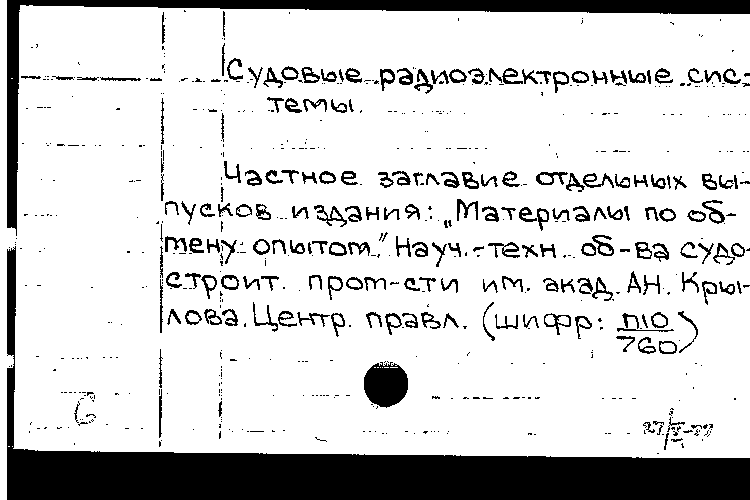 Судовые радиоэлектронные сис-
темы.
Частное заглавие отдельных вы-
пусков издания: „Материалы по об-
мену опытом." Науч.-техн. об-ва судо-
строит. пром-сти им. акад. А.Н. Кры-
лова. Центр. правл. (шифр: П10/760)